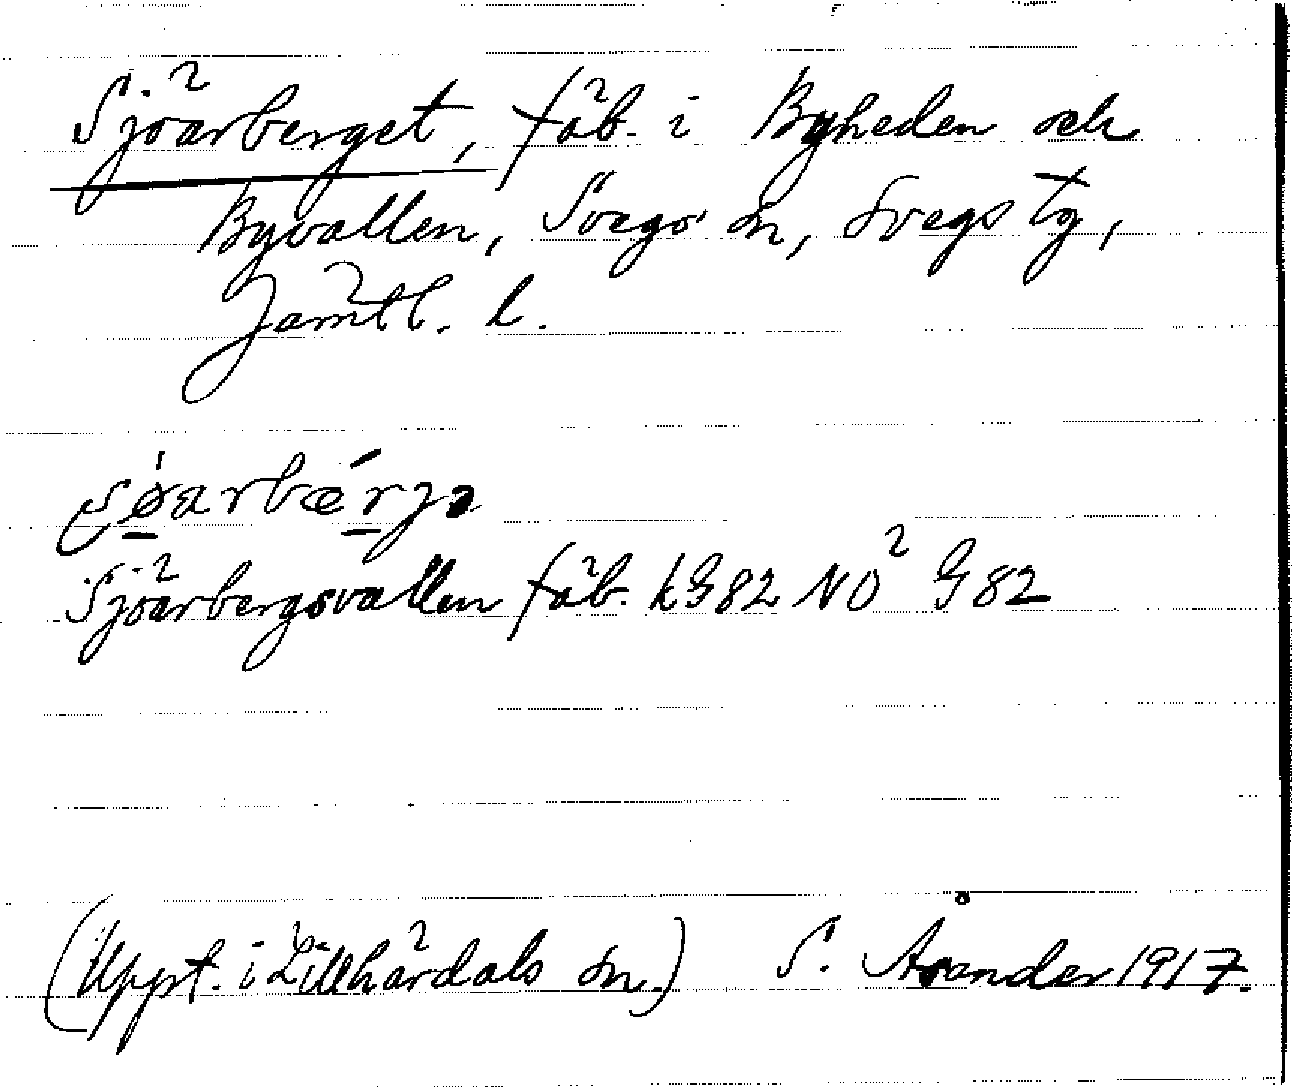 Sjöarberget, fäb. i Byheden och
Byvallen, Svegs sn, Svegs tg,
Jämtl. l.
Sjöarbergsvallen fäb. hG82 NO² G82
(Uppt. i Lillhärdals sn.) S. Åsander 1917.